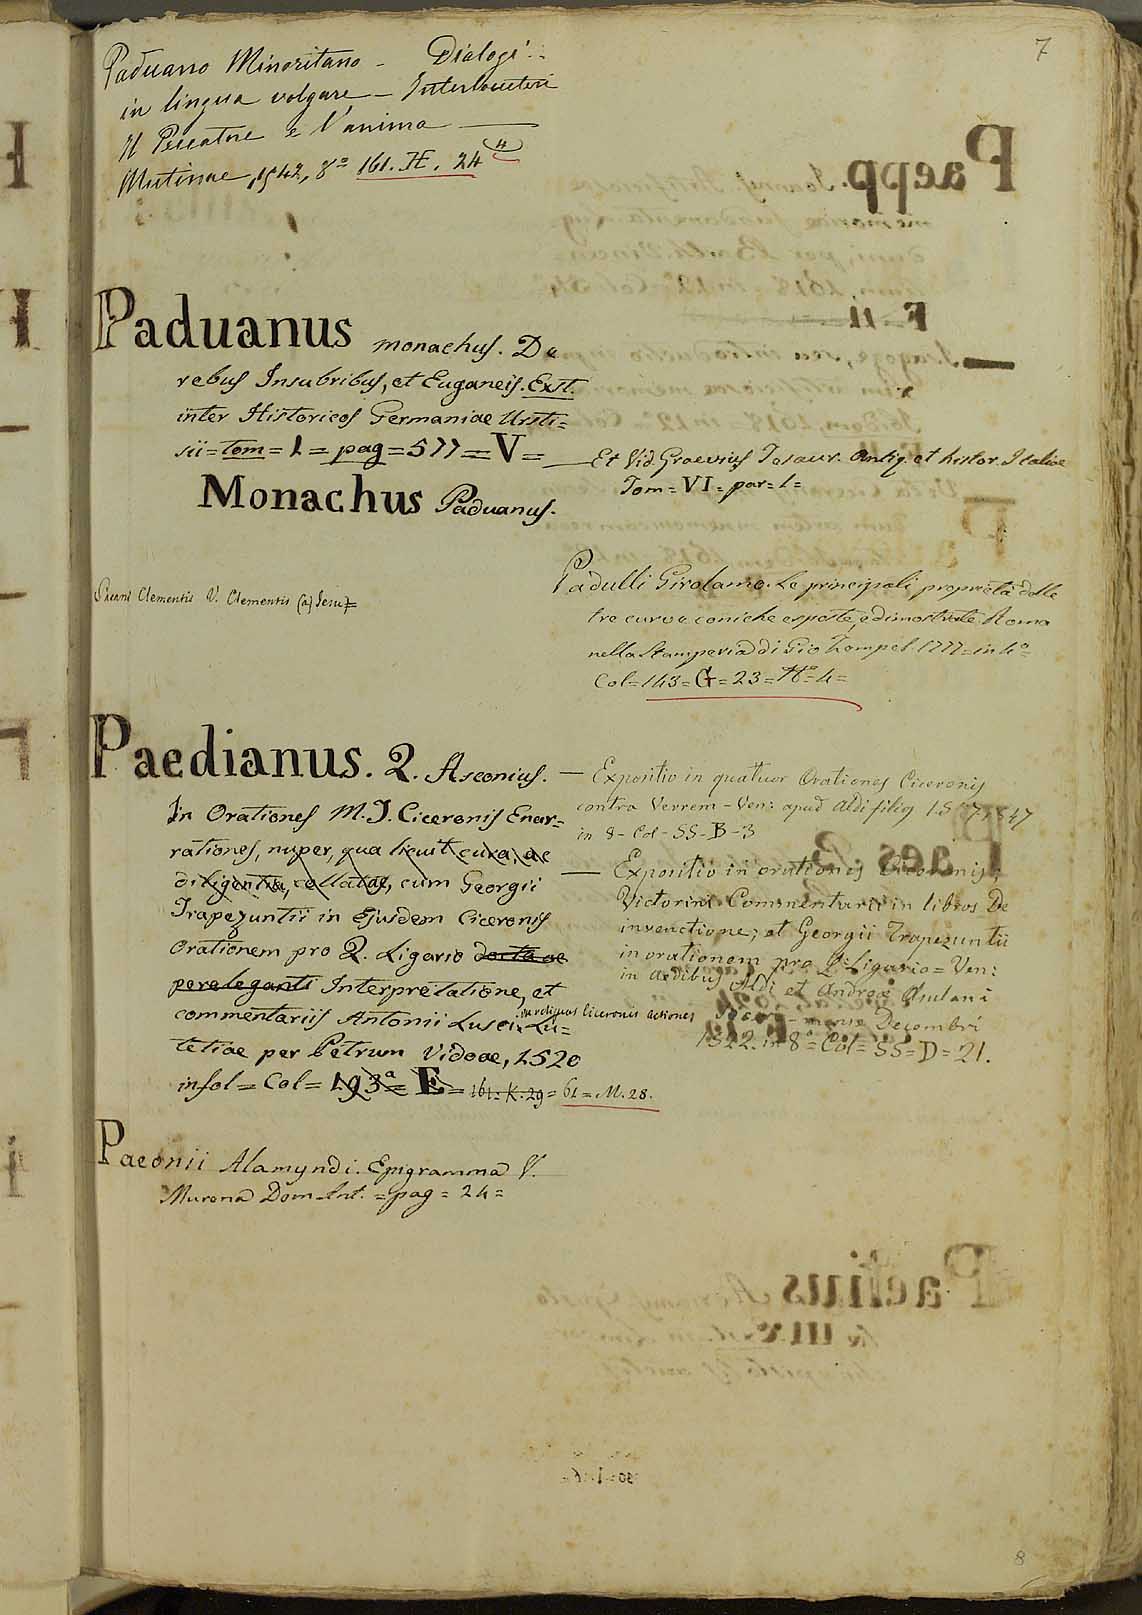 7
Paduano Minoritano - Dialogi
in lingua volgare - Interlocutori
Il Peccatore e l'anima —
Mutinae, 1542, 8º 161. H. 24 (4)
Paduanus monachus. De
rebus Insubribus, et Euganeis. Exst.
inter Historicos Germaniae Ursti=
sii = tom = 1 = pag = 577 = V =
— Et Vid. Graevius Tesaur. Antiq. et histor. Italiae
Tom = VI = par = 1 =
Monachus Paduanus.
Clementis V. Clementis (a) Jesu =
Padulli Girolamo. Le principali proprietà delle
tre curve coniche esposte, e dimostrate Roma
nella Stamperia di Gio Zempel 1777 = in 4º =
Col = 143 = G = 23 = Nº = 4 =
Paedianus. Q. Asconius.
In Orationes M. T. Ciceronis Enar=
rationes, nuper, qua licuit cura, ac
diligentia, collatae, cum Georgii
Trapezuntii in ejusdem Ciceronis
Orationem pro Q. Ligario docta ac
pereleganti Interpretatione, et
commentariis Antonii Lusci in reliquas Ciceronis actiones Lu=
tetiae per Petrum Vidoae, 1520
in fol = Col = 193ª = E = 161 = K. 29 = 61 = M. 28.
— Expositio in quatuor Orationes Ciceronis
contra Verrem - Ven: apud Aldi filios 1547
in 8 - Col - SS - B - 3
— Expositio in orationes Ciceronis;
Victorini Commentarii in libros De
inventione; et Georgii Trapezuntii
in orationem pro Q. Ligario = Ven:
in aedibus Aldi et Andreae Asulani
mense Decembri
1522. in 8º = Col = SS = D = 21.
Paeonii Alamyndi. Epigramma V.
Murena Dom. Ant. = pag = 24 =
8